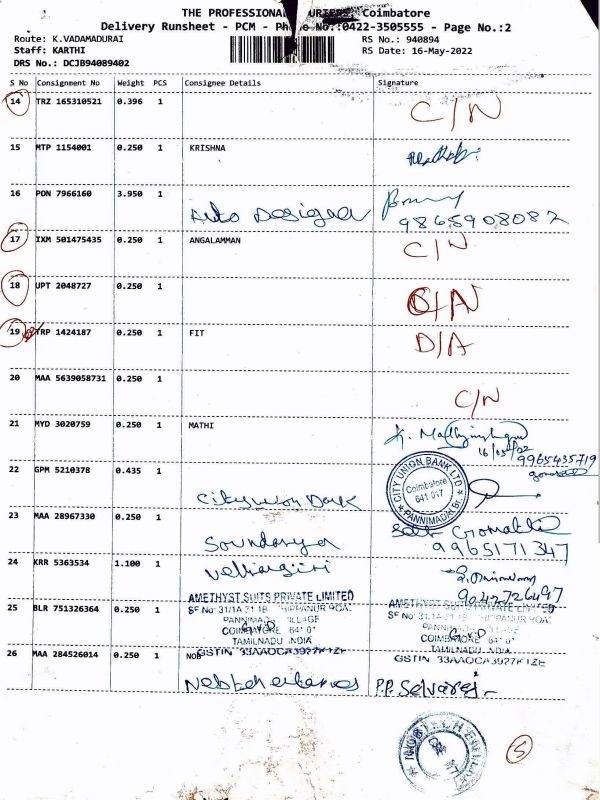 THE PROFESSIONAL COURIERS, Coimbatore
Delivery Runsheet - PCM - Phone No.:0422-3505555 - Page No.:2
Route: K.VADAMADURAI RS No.: 940894
Staff: KARTHI RS Date: 16-May-2022
DRS No.: DCJB94089402
S No Consignment No Weight PCS Consignee Details Signature
14 TRZ 165310521 0.396 1 C/N
15 MTP 1154001 0.250 1 KRISHNA
16 PON 7966160 3.950 1 Auto Designer
9865908082
17 IXM 501475435 0.250 1 ANGALAMMAN C/N
18 UPT 2048727 0.250 1 C/N
19 TRP 1424187 0.250 1 FIT D/A
20 MAA 5639058731 0.250 1 C/N
21 MYD 3020759 0.250 1 MATHI
16/05/22
9965435719
22 GPM 5210378 0.435 1 City union Bank
CITY UNION BANK LTD
Coimbatore
641 017
PANNIMADAI Br.
23 MAA 28967330 0.250 1 Soundarya
9965171347
24 KRR 5363534 1.100 1 Velliangiri
9042726497
25 BLR 751326364 0.250 1 AMETHYST SUITS PRIVATE LIMITED
AMETHYST SUITS PRIVATE LIMITED
COIMBATORE
TAMILNADU INDIA
COIMBATORE
TAMILNADU INDIA
GSTIN 33AAOCA3927K1ZE
GSTIN 33AAOCA3927K1ZE
26 MAA 284526014 0.250 1 NOB
P.P. Selvaraj
5